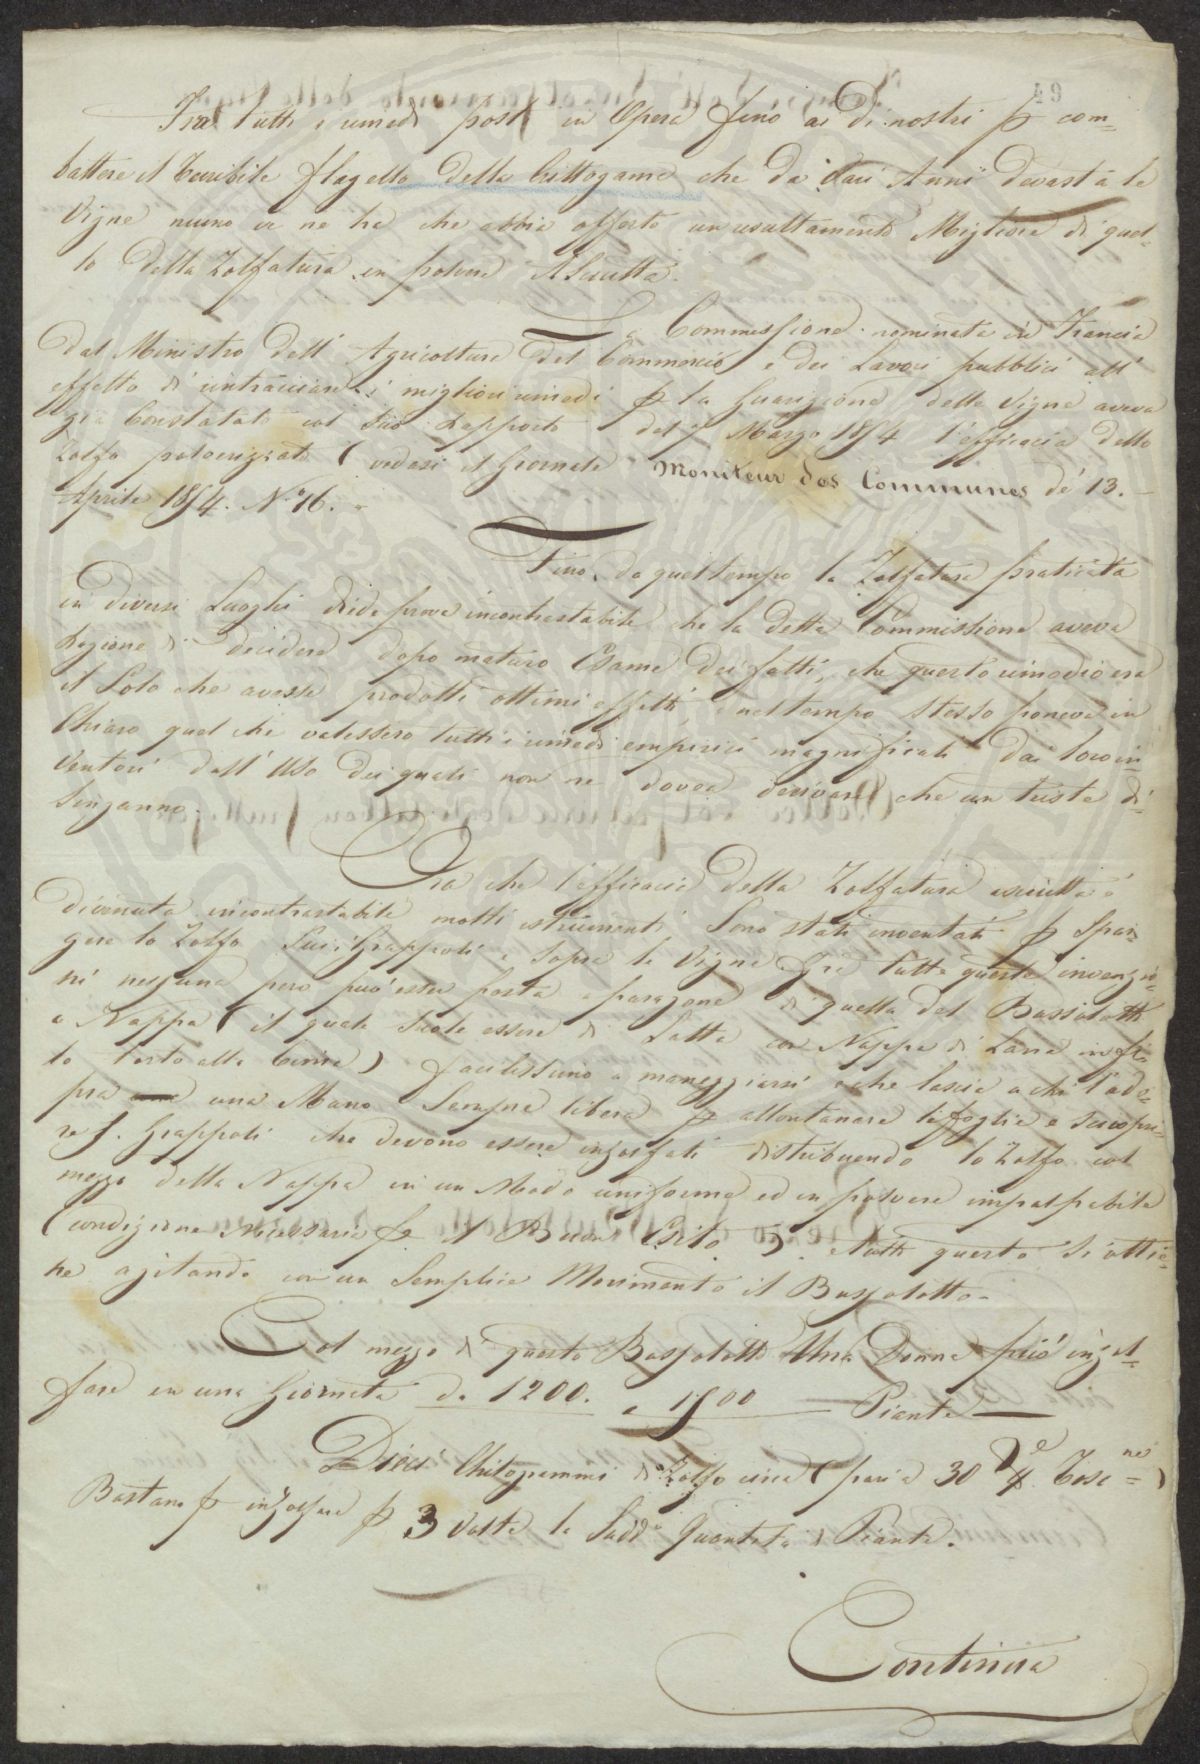 49
Fra tutti i rimedj posti in Opera fino ai Dì nostri p com=
battere il Terribile flagello della Crittogama che da varj Anni devasta le
Vigne niuno vi ne ha che abbia offerto un resultamento Migliore di quel=
lo della Zolfatura in polvere Asciutta.
La Commessione nominata in Francia
dal Ministro dell' Agricoltura del Commercio e dei Lavori pubblici all'
effetto di rintracciare i migliori rimedi p la Guarigione delle Vigne aveva
già Constatato col suo Rapporto del 7 Marzo 1854 l'efficacia dello
Zolfo polverizzato (vedasi il Giornale Moniteur des Communes de' 13.
Aprile 1854. N.° 16.
Fino da quel tempo la Zolfatura praticata
in diversi Luoghi diede prova incontrastabile che la detta Commissione aveva
Ragione di decidere dopo maturo Esame dei fatti, che questo rimedio era
il Solo che avesse prodotti ottimi effetti, e nel tempo stesso poneva in
Chiaro quel che valessero tutti i rimedj empirici magnificati dai loro in=
ventori dall' Uso dei quali non ne dovea derivare che un triste di=
singanno.
Ora che l'efficacia della Zolfatura asciutta è
divenuta incontrastabile molti istrumenti Sono stati inventati p Spar=
gere lo Zolfo Sui Grappoli e Sopra le Vigne. Fra tutte queste invenzio=
ni nessuna però può esser posta a paragone di quella del Bussolotto
a Nappa (il quale Suole essere di Latta con Nappa di Lana in fi=
lo torto alla Cima) facilissimo a maneggiarsi e che lascia a chi l'ado=
pra una Mano Sempre libera p allontanare le foglie e scuopri=
re i Grappoli che devono essere inzolfati distribuendo lo Zolfo col
mezzo della Nappa in un Modo uniforme ed in polvere impalpabile
(condizione Necessaria p il Buon Esito). e tutto questo Si ottie=
ne agitando con un Semplice Movimento il Bussolotto.
Col mezzo di questo Bussolotto Una Donna può inzol=
fare in una Giornata da 1200. a 1500 Piante
Dieci Chilogrammi di Zolfo circa (pari a 30 Tosc=ne)
Bastano p inzolfare p 3 Volte la Sudd.a Quantità di Piante.
Continua